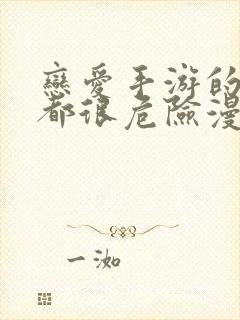 戀愛手游的
都很危險漫
一洳